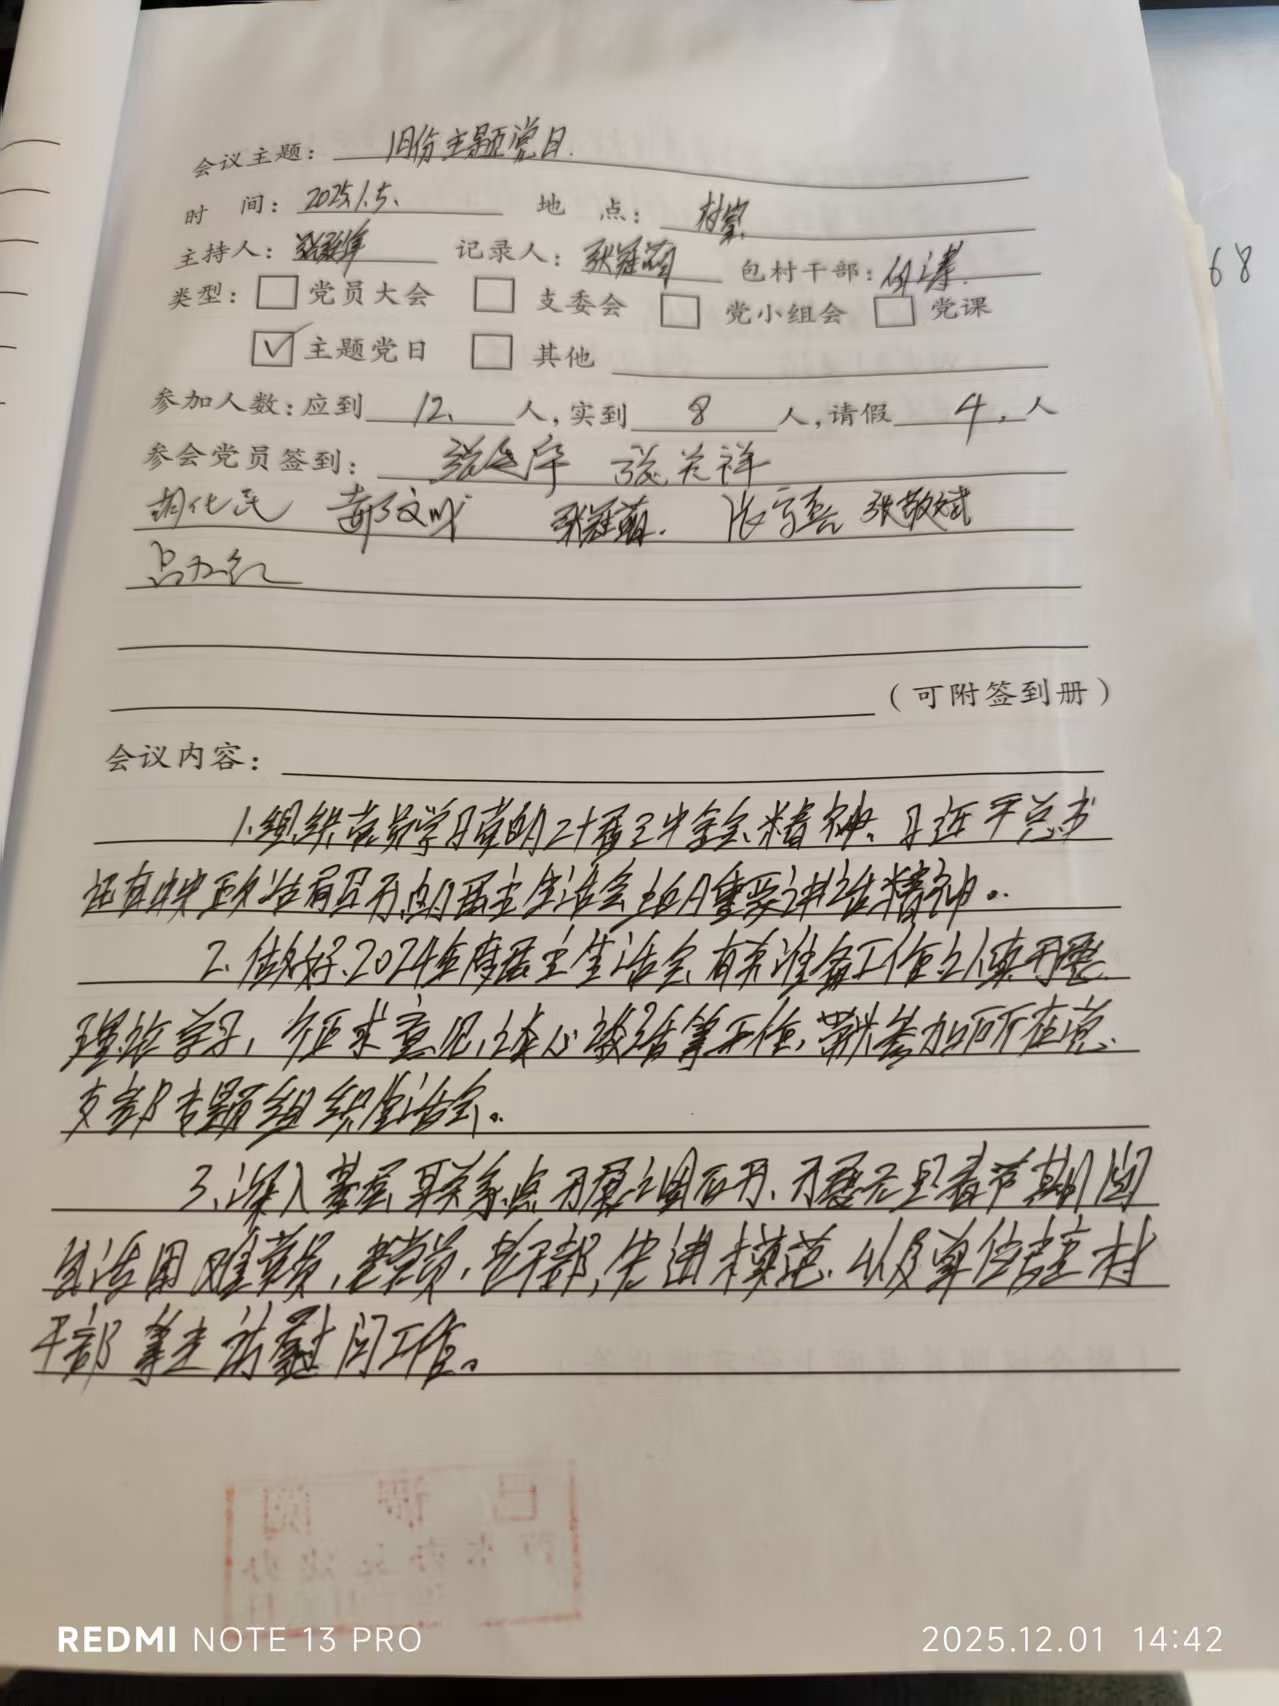 会议主题：1月份主题党日.
时 间：2025.1.5. 地 点：村室
主持人： 记录人：张冠萌 包村干部：
类型：□ 党员大会 □ 支委会 □ 党小组会 □ 党课
☑ 主题党日 □ 其他
参加人数：应到 12 人，实到 8 人，请假 4 人
参会党员签到：
胡化民 张冠萌 张敬斌
（可附签到册）
会议内容：
1.组织党员学习党的二十届三中全会精神、习近平总书
记在中央政治局召开的民主生活会的重要讲话精神。
2.做好2024年度民主生活会有关准备工作，认真开展
理论学习，征求意见，谈心谈话等工作，带头参加所在党
支部专题组织生活会。
3.深入基层联系点开展调研，开展元旦春节期间
生活困难党员，老党员，老干部，先进模范，以及单位驻村
干部等走访慰问工作。
68
REDMI NOTE 13 PRO
2025.12.01 14:42